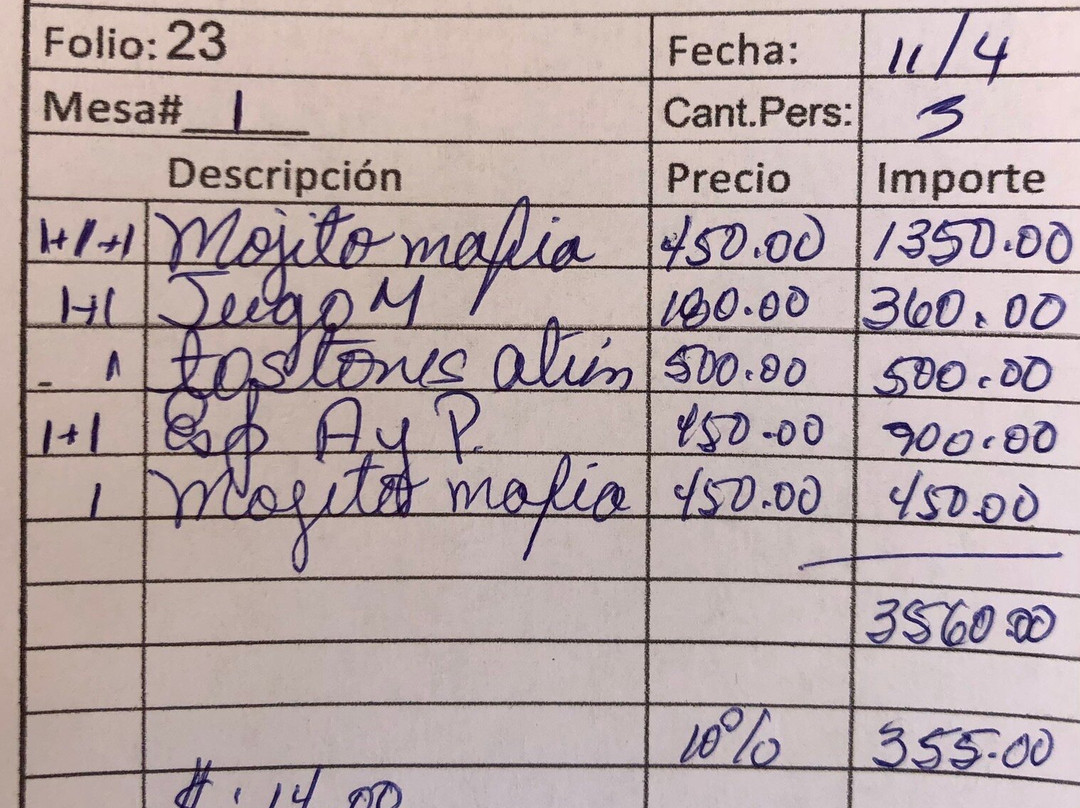 Folio: 23 Fecha: 11/4
Mesa# 1 Cant.Pers: 3
Descripción Precio Importe
1+1+1 Mojito mafia 450.00 1350.00
1+1 Jugo M 180.00 360.00
1 tostones atún 500.00 500.00
1+1 Esp A y P. 450.00 900.00
1 Mojito mafia 450.00 450.00
3560.00
10% 355.00
14.00